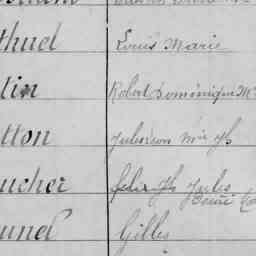 thuel Louis Marie
tin Robert Dominique M
tton Julien Mie Jh
ucher félix Jh Jules
René
unel Gilles